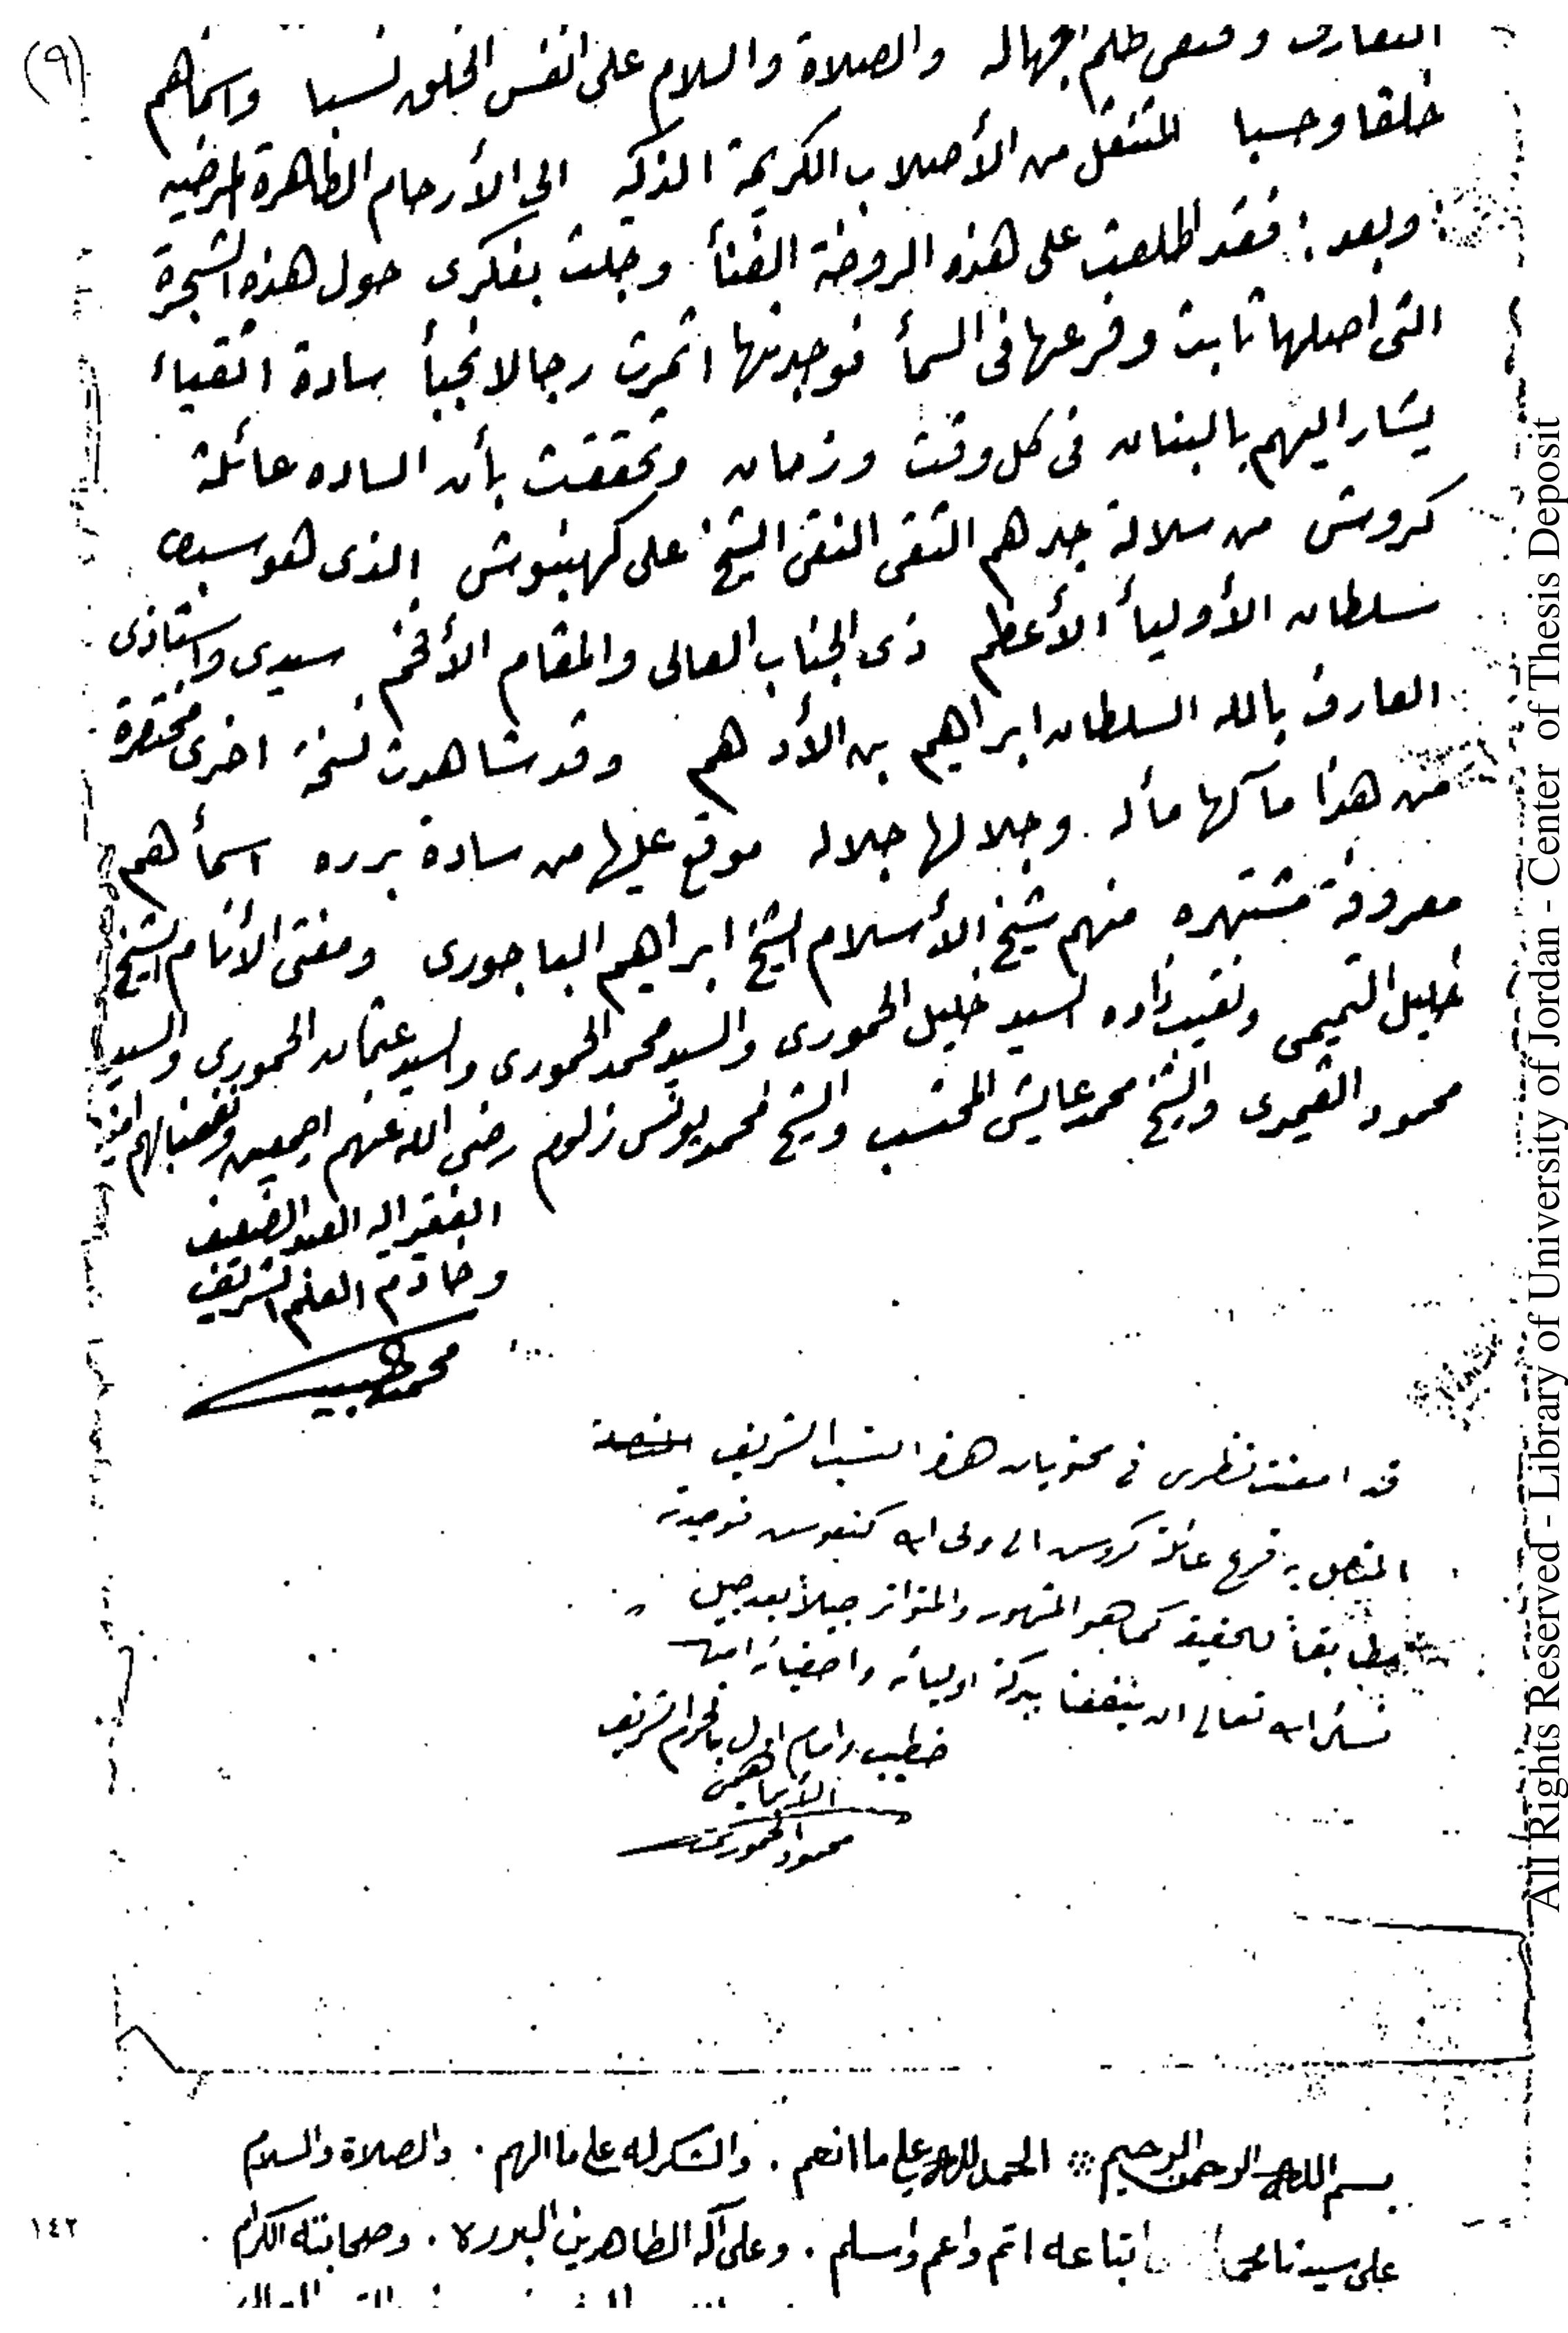 (٩)
التعارف ومنفى ظلم الجهاله والصلاة والسلام على انفس الخلق نسبا واسماهم
خلقا وحسبا المنتقل من الأصلاب الكريمة الذكيه الى الأرحام الطاهرة المرضيه
وبعد : فقد اطلعت على هذه الروضة الغنأ وجلت بفكرى حول هذه الشجرة
التى اصلها ثابت وفرعها فى السمأ فوجدتها اثمرت رجالا نجبأ سادة اتقياء
يشار اليهم بالبنان فى كل وقت وزمان وتحققت بأن الساده عائلة
كروش من سلالة جدهم التقى النقى الشيخ على كهنبوش الذى هو سبط
سلطان الأوليأ الأعظم ذى الجناب العالى والمقام الأفخم سيدى واستاذى
العارف بالله السلطان ابراهيم بن الأدهم وقد شاهدت نسخة اخرى مختصرة
من هذا مآلها مأله وجلالها جلاله موقع عليها من سادة برره اسمأهم
معروفة مشتهره منهم شيخ الأسلام الشيخ ابراهيم الباجورى ومفتى الأنام الشيخ
خليل التميمى ونقيب زاده السيد خليل الحمورى والسيد محمد الحمورى والسيد عثمان الحمورى والسيد
محمود القيمرى والشيخ محمد عايش المحتسب والشيخ محمد يونس زلوم رضى الله عنهم اجمعين ونفعنا بهم امين
الفقير اليه العبد الضعيف
وخادم العلم الشريف
محمد
قد امعنت نظرى فى محتويات هذا النسب الشريف
المتصل به فرع عائلة كروش الى ولى الله كنفوش فوجدته
مطابقاً للحقيقة كما هو المشهور والمتواتر جيلاً بعد جيل
نسأل الله تعالى ان ينفعنا ببركة اوليائه واصفيائه امين
خطيب وامام اول بالحرم الشريف
الأبراهيمى
محمود الحمورى
بسم الله الرحمن الرحيم * الحمد لله على ما انعم . والشكر له على ما الهم . والصلاة والسلام
على سيدنا اتباعه اتم واعم واسلم . وعلى آله الطاهرين البدره . وصحابته الكرام .
١٤٢
All Rights Reserved - Library of University of Jordan - Center of Thesis Deposit